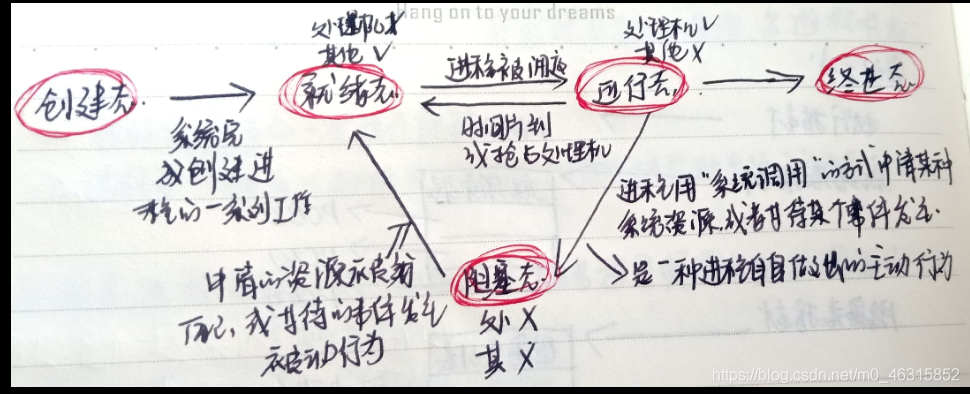 Hang on to your dreams
处理机 X
其他 √
处理机 √
其他 X
创建态
就绪态
进程被调度
运行态
终止态
时间片到
或抢占处理机
系统完
成创建进
程的一系列工作
进程用"系统调用"的方式申请某种
系统资源,或者等待某个事件发生
是一种进程自身做出的主动行为
申请的资源被分
配,或等待的事件发生
被动行为
阻塞态
处 X
其 X
https://blog.csdn.net/m0_46315852